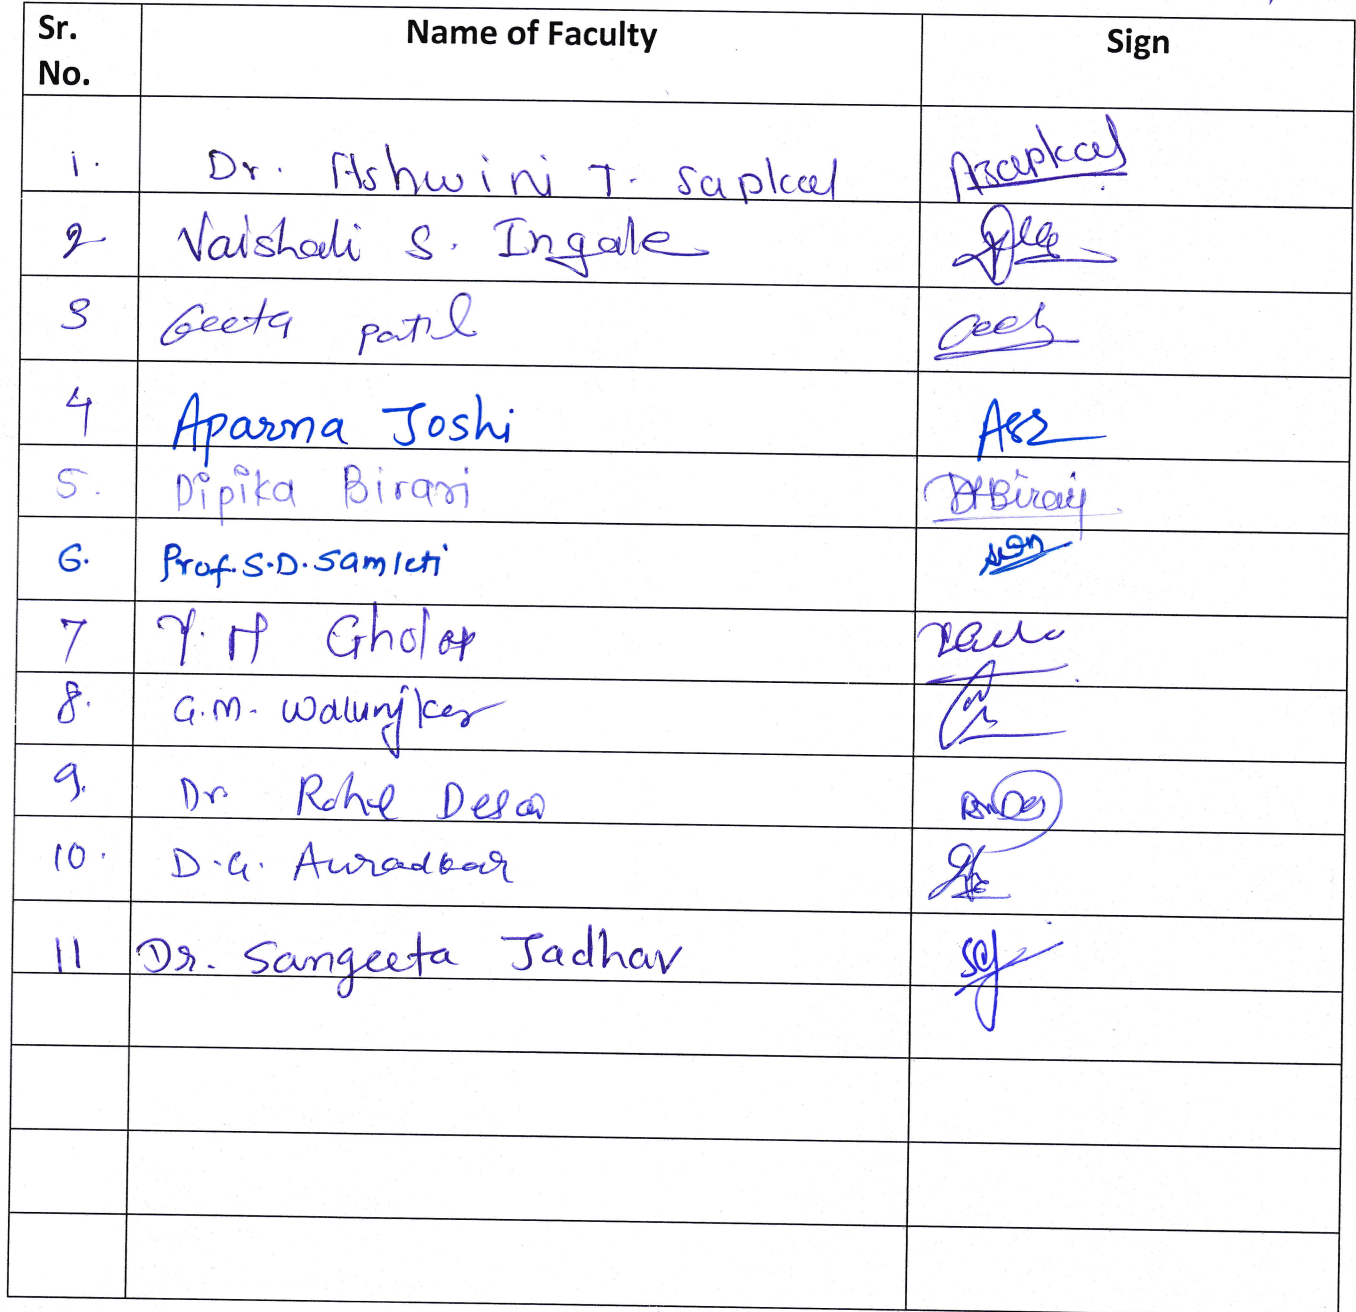 Sr. No. Name of Faculty Sign
1. Dr. Ashwini T. Sapkal Asapkal
2 Vaishali S. Ingale
3 Geeta patil
4 Aparna Joshi
5. Dipika Birari DHBirari
6. Prof. S.D. Samleti
7 Y. H Gholap
8. G.M. Walunjkar
9. Dr Rahul Desai
10. D.G. Auradkar
11 Dr. Sangeeta Jadhav